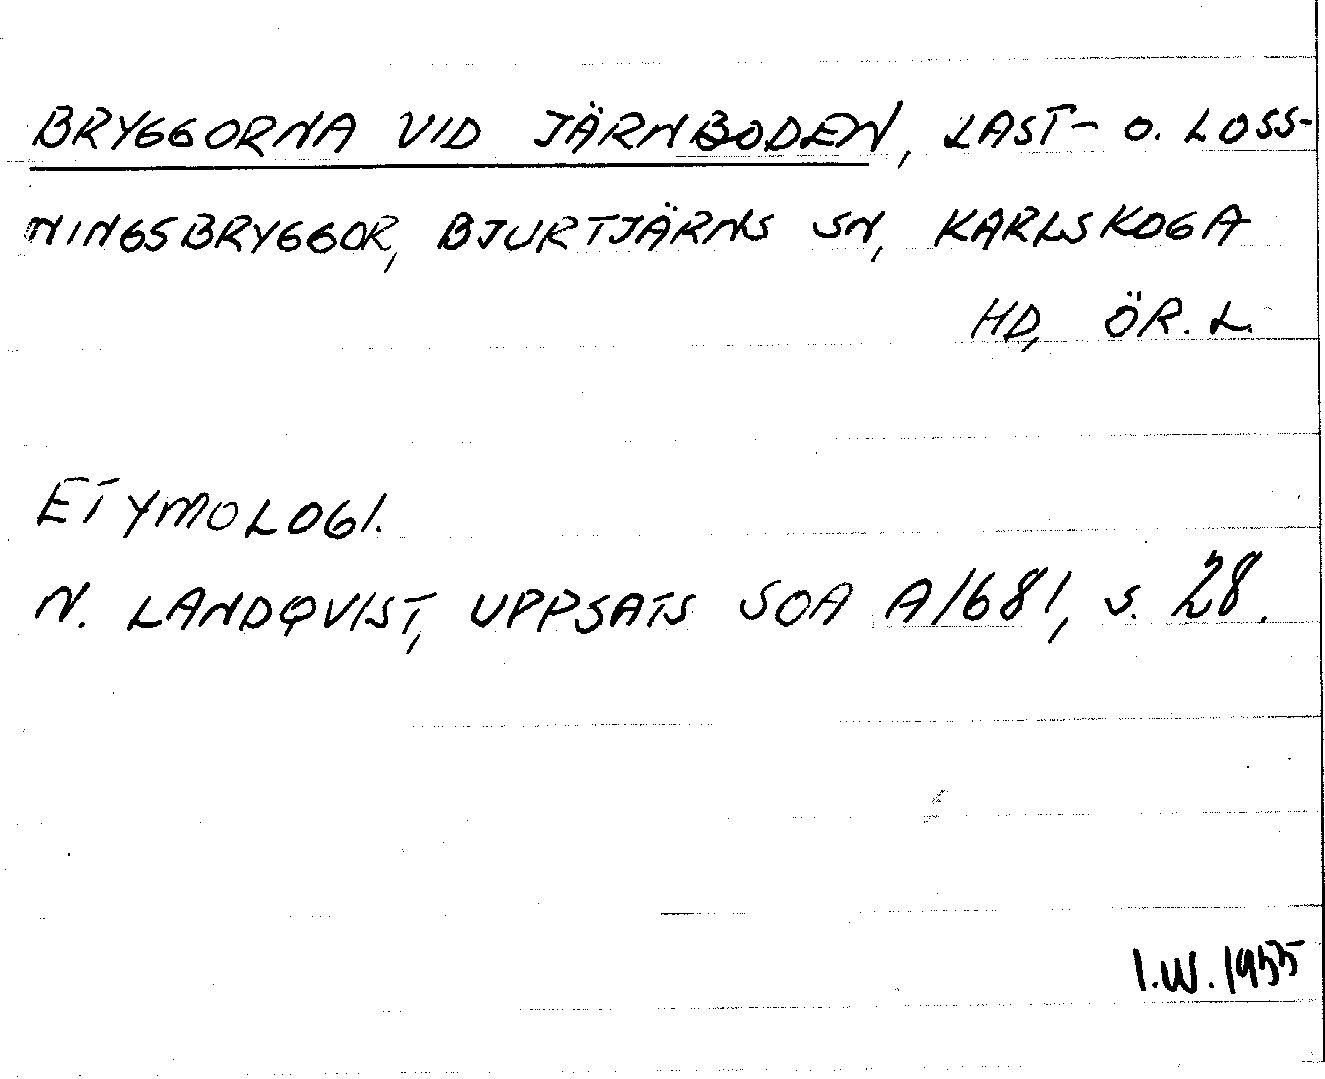 BRYGGORNA VID JÄRNBODEN, LAST- O. LOSS-
NINGSBRYGGOR, BJURTJÄRNS SN, KARLSKOGA
HD, ÖR. L.
ETYMOLOGI.
N. LANDQVIST, UPPSATS SOA A/681, s. 28.
I.W. 1955